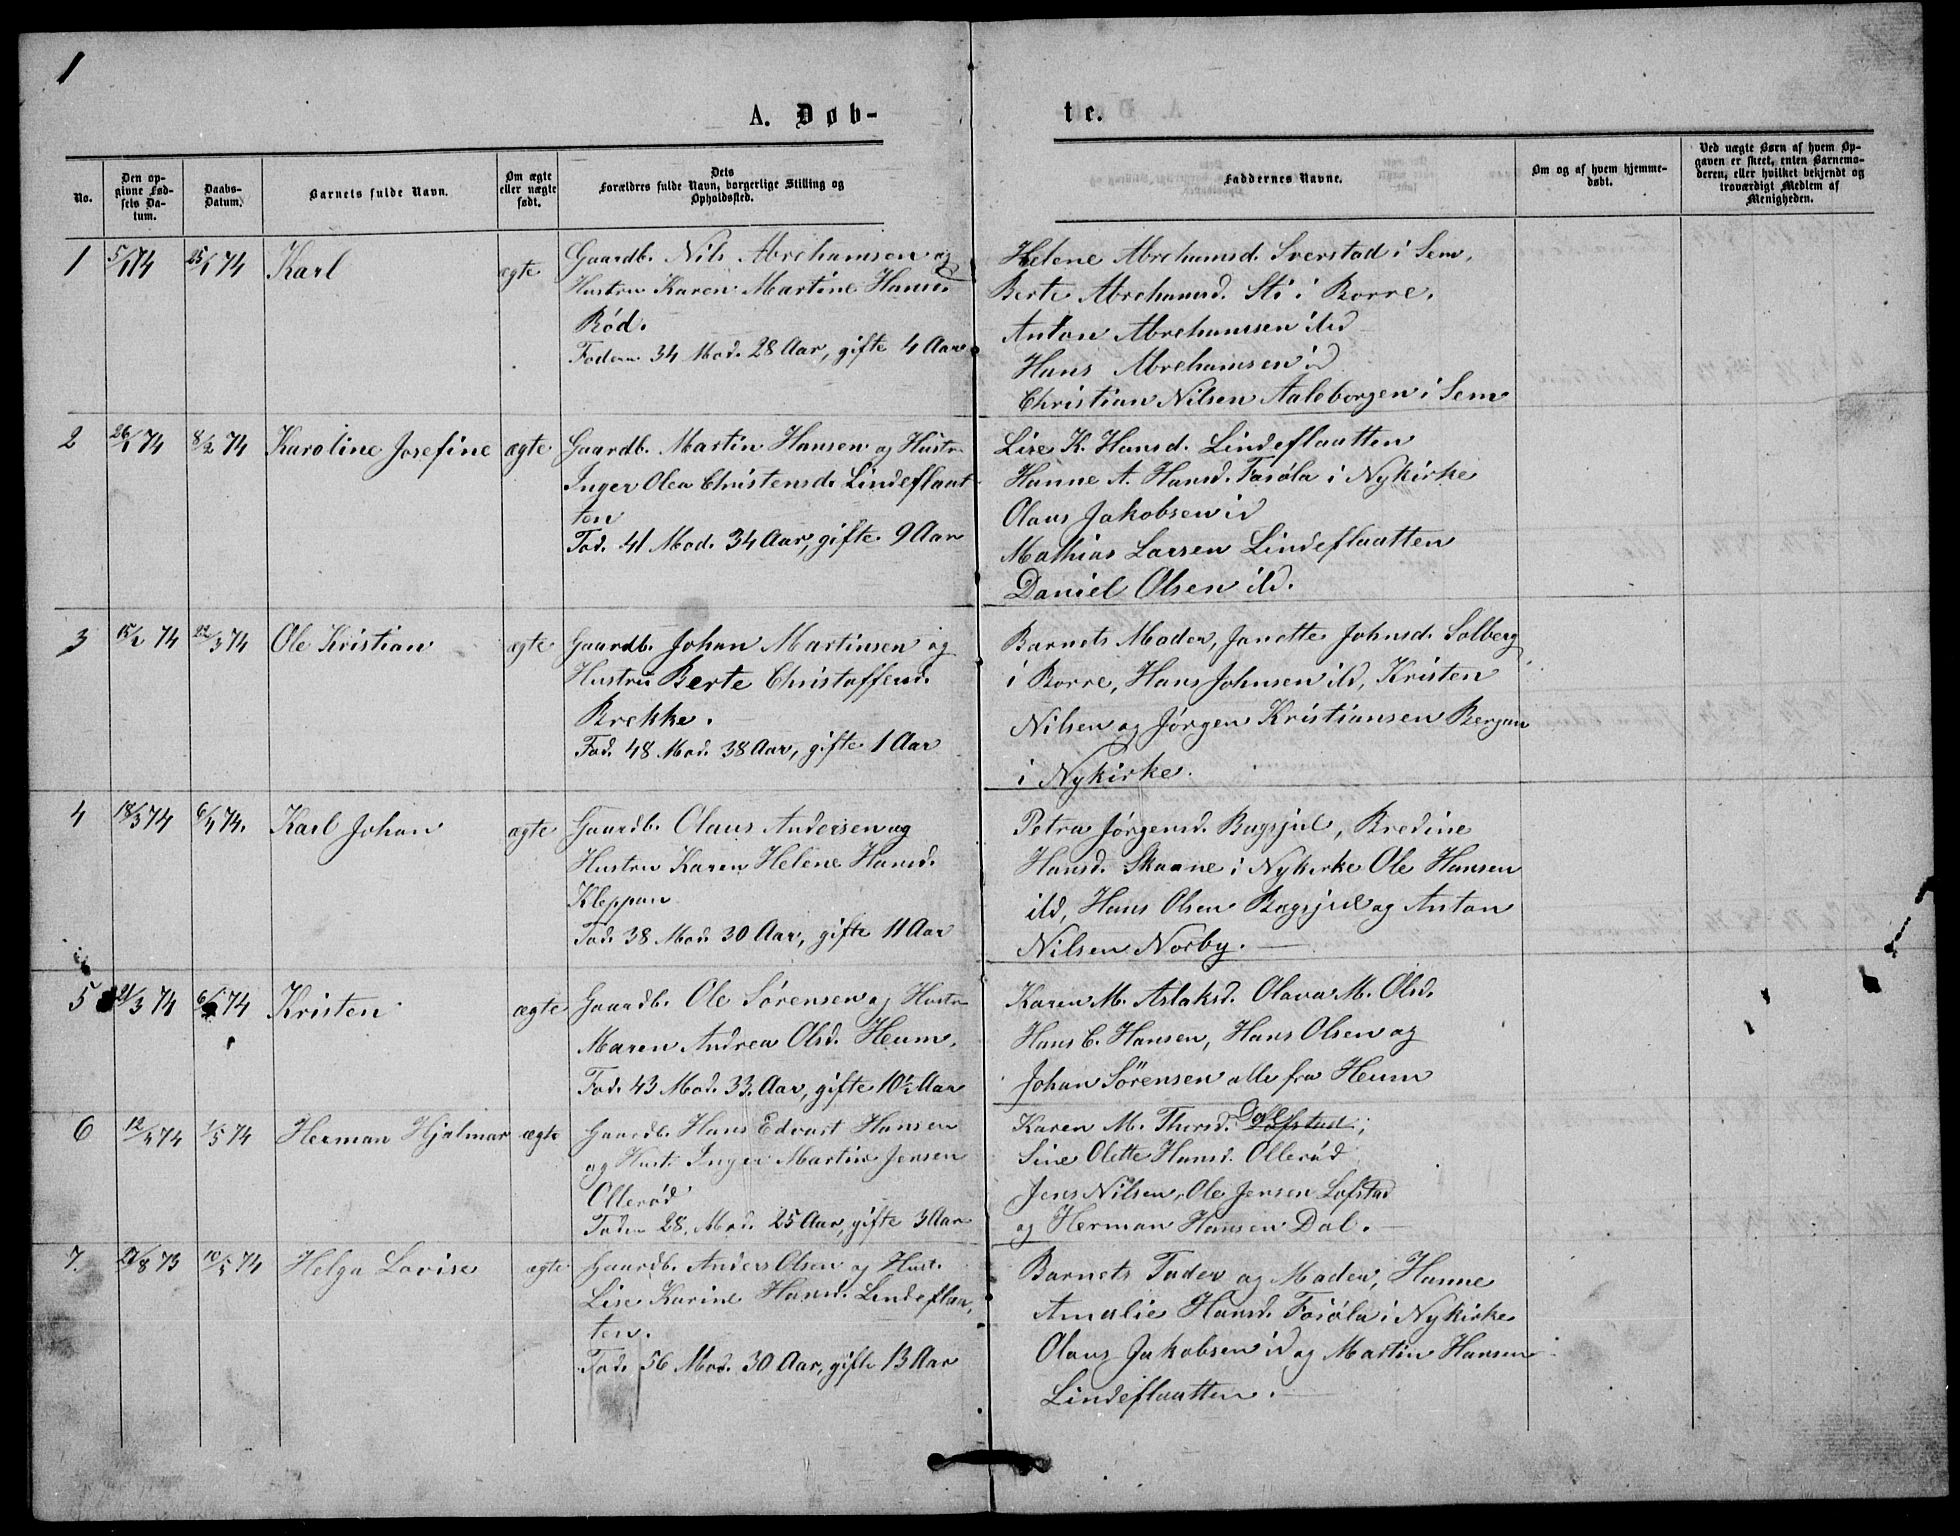 1
A. Døb-
te.
No.
Den op-
givne Fød-
sels Da-
tum.
Daabs-
Datum.
Barnets fulde Navn.
Om ægte
eller uægte
født.
Dets
Forældres fulde Navn, borgerlige Stilling og
Opholdssted.
Faddernes Navne.
Om og af hvem hjemme-
døbt.
Ved uægte Børn af hvem Op-
gaven er skeet, enten Barnemo-
deren, eller hvilket bekjendt og
troværdigt Medlem af
Menigheden.
1 5/1 74 25/1 74 Karl ægte
Gaardb. Nils Abrehamsen og
Hustru Karen Martine Hansd.
Rød.
Faderen 34 Mod. 28 Aar, gifte 4 Aar
Helene Abrehamsd. Sverstad i Sem,
Berte Abrehamsd. Sti i Borre.
Anton Abrehamsen ibd
Hans Abrehamsen id
Christian Nilsen Aaleborgen i Sem
2 26/1 74 8/2 74 Karoline Josefine ægte
Gaardb. Martin Hansen og Hustr.
Inger Olea Christensd. Lindeflaat
ten
Fad. 41 Mod. 34 Aar, gifte 9 Aar
Lise K. Hansd. Lindeflaatten
Hanne A. Hansd. Fosøla i Nykirke
Olaus Jakobsen id
Mathias Larsen Lindeflaatten
Daniel Olsen ibd.
3 15/2 74 22/3 74 Ole Kristian ægte
Gaardb. Johan Martinsen og
Hustru Berte Christoffersd.
Brekke.
Fad. 48 Mod. 38 Aar, gifte 1 Aar
Barnets Moder, Janette Johnsd. Solberg
i Borre, Hans Johnsen ibd, Kristen
Nilsen og Jørgen Kristiansen Bergan
i Nykirke.
4 18/3 74 6/4 74. Karl Johan ægte
Gaardb. Olaus Andersen og
Hustru Karen Helene Hansd.
Kleppan
Fad. 38 Mod. 30 Aar, gifte 11 Aar
Petra Jørgensd. Bugsjul, Bredine
Hansd. Skaane i Nykirke Ole Hansen
ibd, Hans Olsen Bugsjul og Anton
Nilsen Norby.
5 21/3 74 74 Kristen ægte
Gaardb. Ole Sørensen og Hustr
Maren Andrea Olsd. Heum,
Fad. 43 Mod. 33. Aar, gifte 10½ Aar
Karen M. Aslaksd. Olava M. Olsd.
Hans C. Hansen, Hans Olsen og
Johan Sörensen alle fra Heum
6 12/4 74 1/5 74 Herman Hjalmar ægte
Gaardb. Hans Edvart Hansen
og Hust. Inger Martin Jensen
Ollerød
Faderen 28, Mod. 25 Aar, gifte 3 Aar
Karen M. Thorsd. Dal
Sine Olette Hansd. Ollerød
Jens Nilsen, Ole Jensen Lofstad
og Herman Hansen Dal.
7. 21/8 73 10/5 74 Helga Lovise ægte
Gaardb. Anders Olsen og Hust.
Lise Karine Hansd. Lindeflaa,
ten.
Fad. 56 Mod. 30 Aar, gifte 13 Aar
Barnets Fader og Moder, Hanne
Amalie Hansd. Fosøla i Nykirke
Olaus Jakobsen id og Martin Hansen
Lindeflaatten.